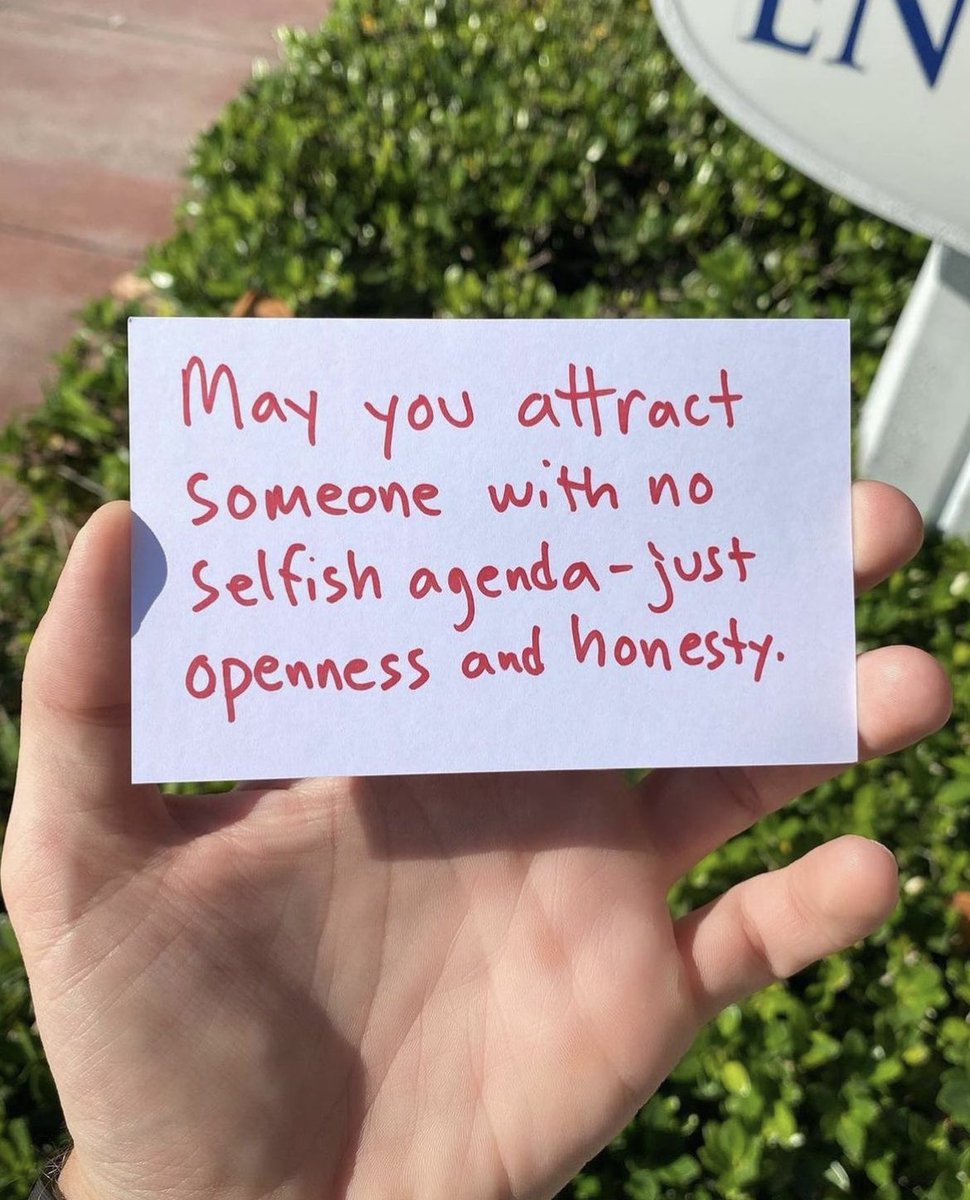 EN
May you attract
someone with no
selfish agenda-just
openness and honesty.